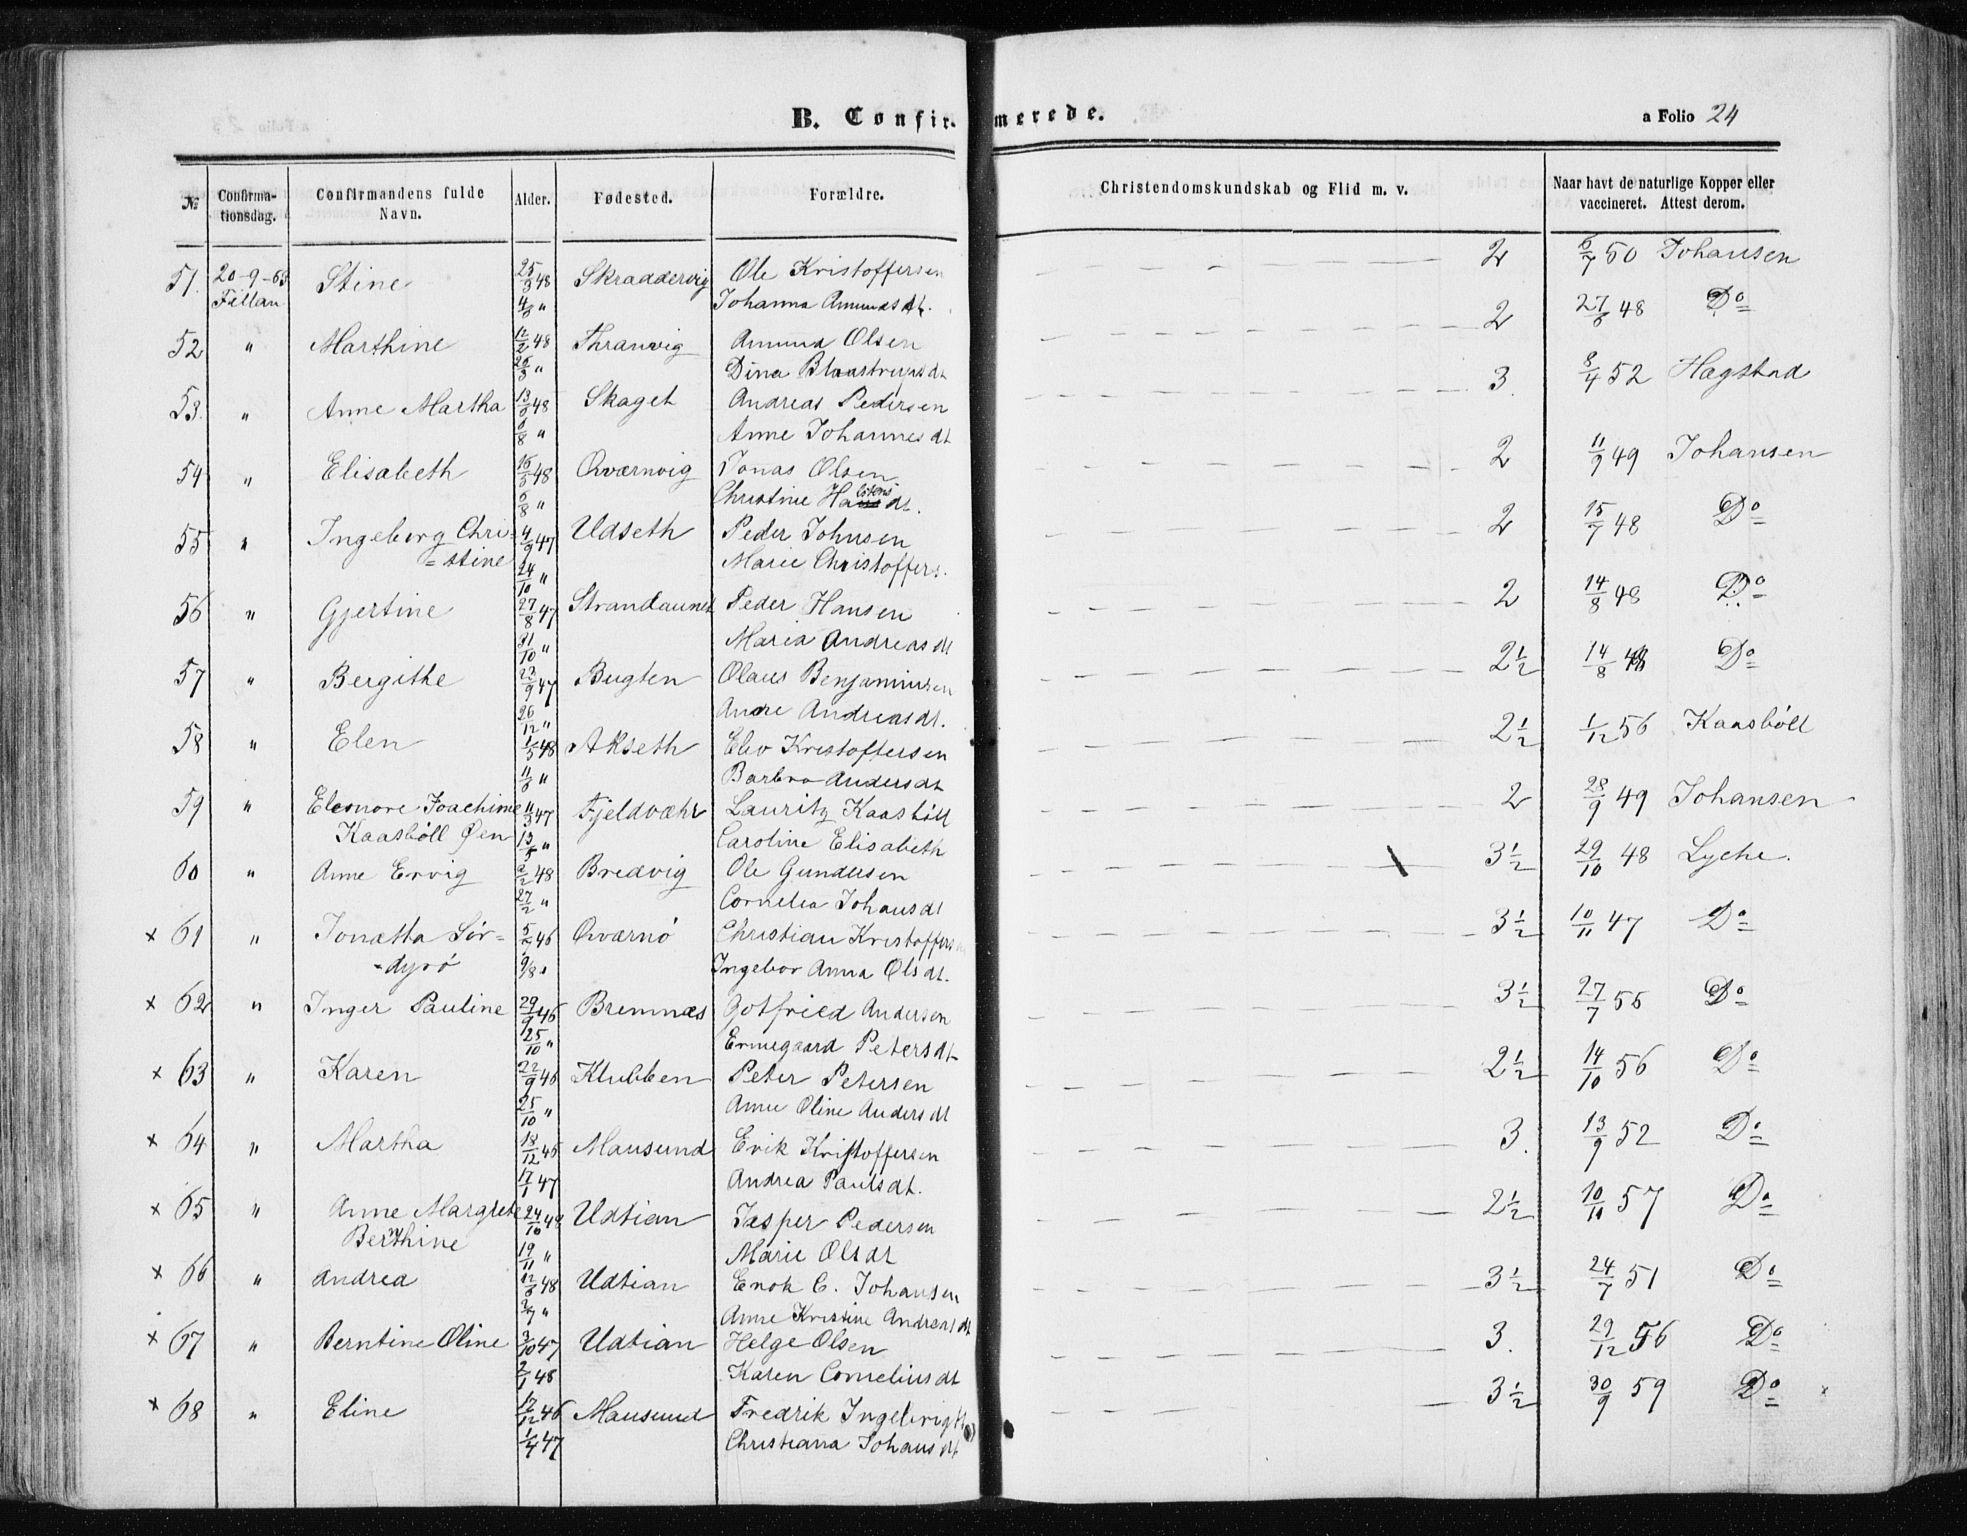 B. Confirmerede.
a Folio 24
№ Confirmationsdag. Confirmandens fulde Navn. Alder. Fødested. Forældre. Christendomskundskab og Flid m. v. Naar havt de naturlige Kopper eller vaccineret. Attest derom.
51. 20-9-63 Stine 25/3 48 Skraddervig Ole Kristoffersen 2 6/7 50 Johansen
Fillan 4/3 " Johanna Amundsdt.
52 " Marthine 12/2 48 Thranvig Amund Olsen 2 27/6 48 Do
26/3 " Dina Blaastrupsdt
53. " Anne Martha 13/6 48 Skaget Andreas Pedersen 3. 8/4 52 Hagstad
6/8 " Anne Johannesdt
54 " Elisabeth 16/5 48 Qværnvig Jonas Olsen 2 11/9 49 Johansen
6/8 " Christine
55 " Ingeborg Chri= 4/9 47 Udseth Peder Johnsen 2 15/7 48 Do
=stine 24/10 " Marie Christoffers.
56 " Gjertine 27/8 47 Strandaunet Peder Hansen 2 14/8 48 Do
31/10 " Maria Andreasdt
57 " Bergithe 23/9 47 Bugten Olaus Benjaminsen 2½ 14/8 48 Do
26/12 " Andreasdt.
58 " Elen 1/5 48 Akseth Elev Kristoffersen 2½ 1/12 56 Kaasböll
11/6 " Barbro Andersdt
59 " Eleonore Joachime 11/3 47 Fjeldværr Lauritz Kaasböll 2 28/9 49 Johansen
Kaasböll Øen 13/5 " Caroline Elisabeth
60 " Anne Ervig 2/2 48 Bredvig Ole Gundersen 3½ 29/10 48 Lyche.
27/2 " Cornelia Johansdt
× 61 " Jonetta Sör- 5/7 46 Qværnö Christian Kristoffersen 3½ 10/11 47 Do
-dyrö 9/8 " Ingebor Anna Olsdt.
× 62 " Inger Pauline 29/9 46 Bremnæs Gotfried Andersen 3½ 27/7 55 Do
25/10 " Ermegaard Petersdt
× 63 " Karen 22/9 46 Klubben Peter Petersen 2½ 14/10 56 Do
25/10 " Anne Oline Andersdt
× 64 " Martha 18/12 46 Mausund Erik Kristoffersen 3. 13/9 52 Do
17/1 47 Andrea Paulsdt.
× 65 " Anne Margrete 24/10 49 Udtian Jesper Pedersen 2½ 10/11 57 Do
Bernthine 19/11 " Marie Olsdt
× 66 " Andrea 12/6 48 Udtian Enok C. Johansen 3½ 24/7 51 Do
2/7 " Anne Kristine Andreasdt
× 67 " Berntine Oline 3/10 47 Udtian Helge Olsen 3. 29/12 56 Do
2/1 48 Karen Corneliusdt
× 68 " Eline 17/12 46 Mausund Fredrik Ingebrigts 3½ 30/9 59 Do
1/4 47 Christiana Johansdt